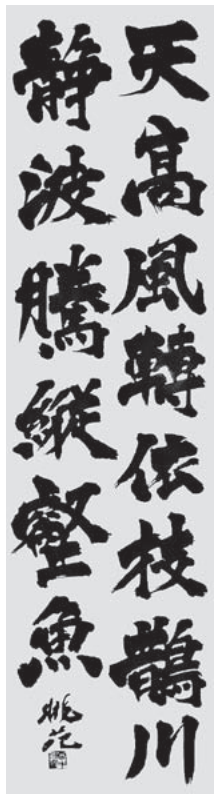 天高風轉依枝鵲川
静波騰縦壑魚
桃苑